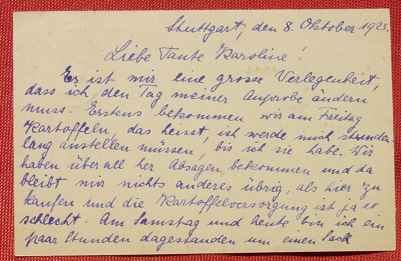 Stuttgart, den 8. Oktober 1923.
Liebe Tante Karoline!
Es ist mir eine grosse Verlegenheit,
dass ich den Tag meiner Anprobe ändern
muss. Erstens bekommen wir am Freitag
Kartoffeln, das heisst, ich werde mich stunden
lang anstellen müssen, bis ich sie habe. Wir
haben überall her Absagen bekommen und da
bleibt mir nichts anderes übrig, als hier zu
kaufen und die Kartoffelversorgung ist ja so
schlecht. Am Samstag und heute bin ich ein
paar Stunden dagestanden um einen Sack